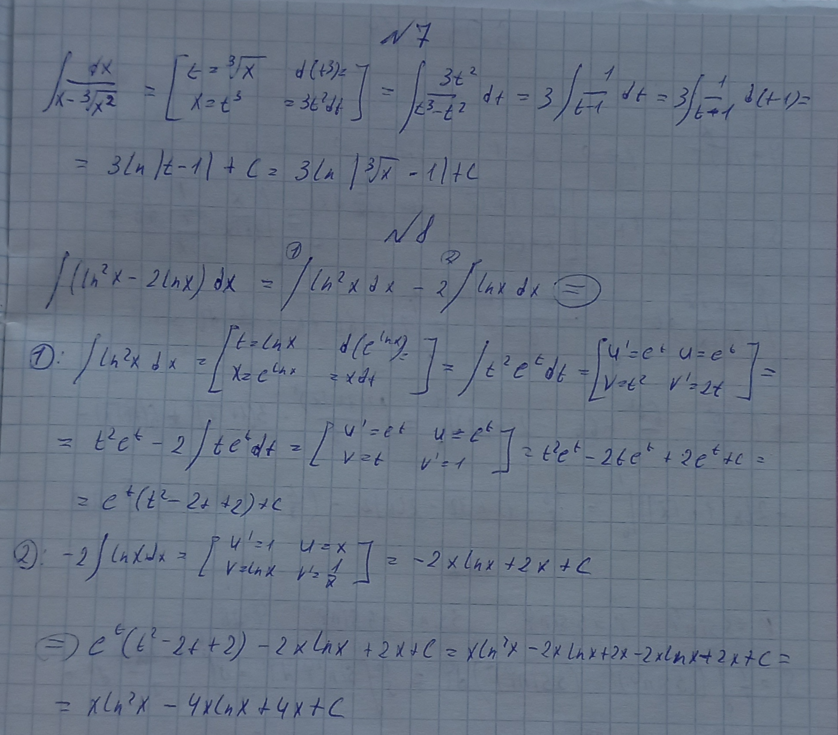 №7
∫ dx/(x-∛x²) = [t = ∛x d(t³)= x = t³ = 3t²dt] = ∫ 3t²/(t³-t²) dt = 3∫ 1/(t-1) dt = 3∫ 1/(t-1) d(t-1) =
= 3ln|t-1| + C = 3ln|∛x - 1| + C
№8
∫(ln²x - 2lnx) dx = ①∫ln²x dx - ②2∫lnx dx ⊜
①: ∫ln²x dx = [t = lnx d(e^(lnx))= x = e^(lnx) = xdt] = ∫t²e^t dt = [u' = e^t u = e^t v = t² v' = 2t] =
= t²e^t - 2∫te^t dt = [u' = e^t u = e^t v = t v' = 1] = t²e^t - 2te^t + 2e^t + C =
= e^t(t² - 2t + 2) + C
②: -2∫lnxdx = [u' = 1 u = x v = lnx v' = 1/x] = -2xlnx + 2x + C
⊜ e^t(t² - 2t + 2) - 2xlnx + 2x + C = xln²x - 2xlnx + 2x - 2xlnx + 2x + C =
= xln²x - 4xlnx + 4x + C